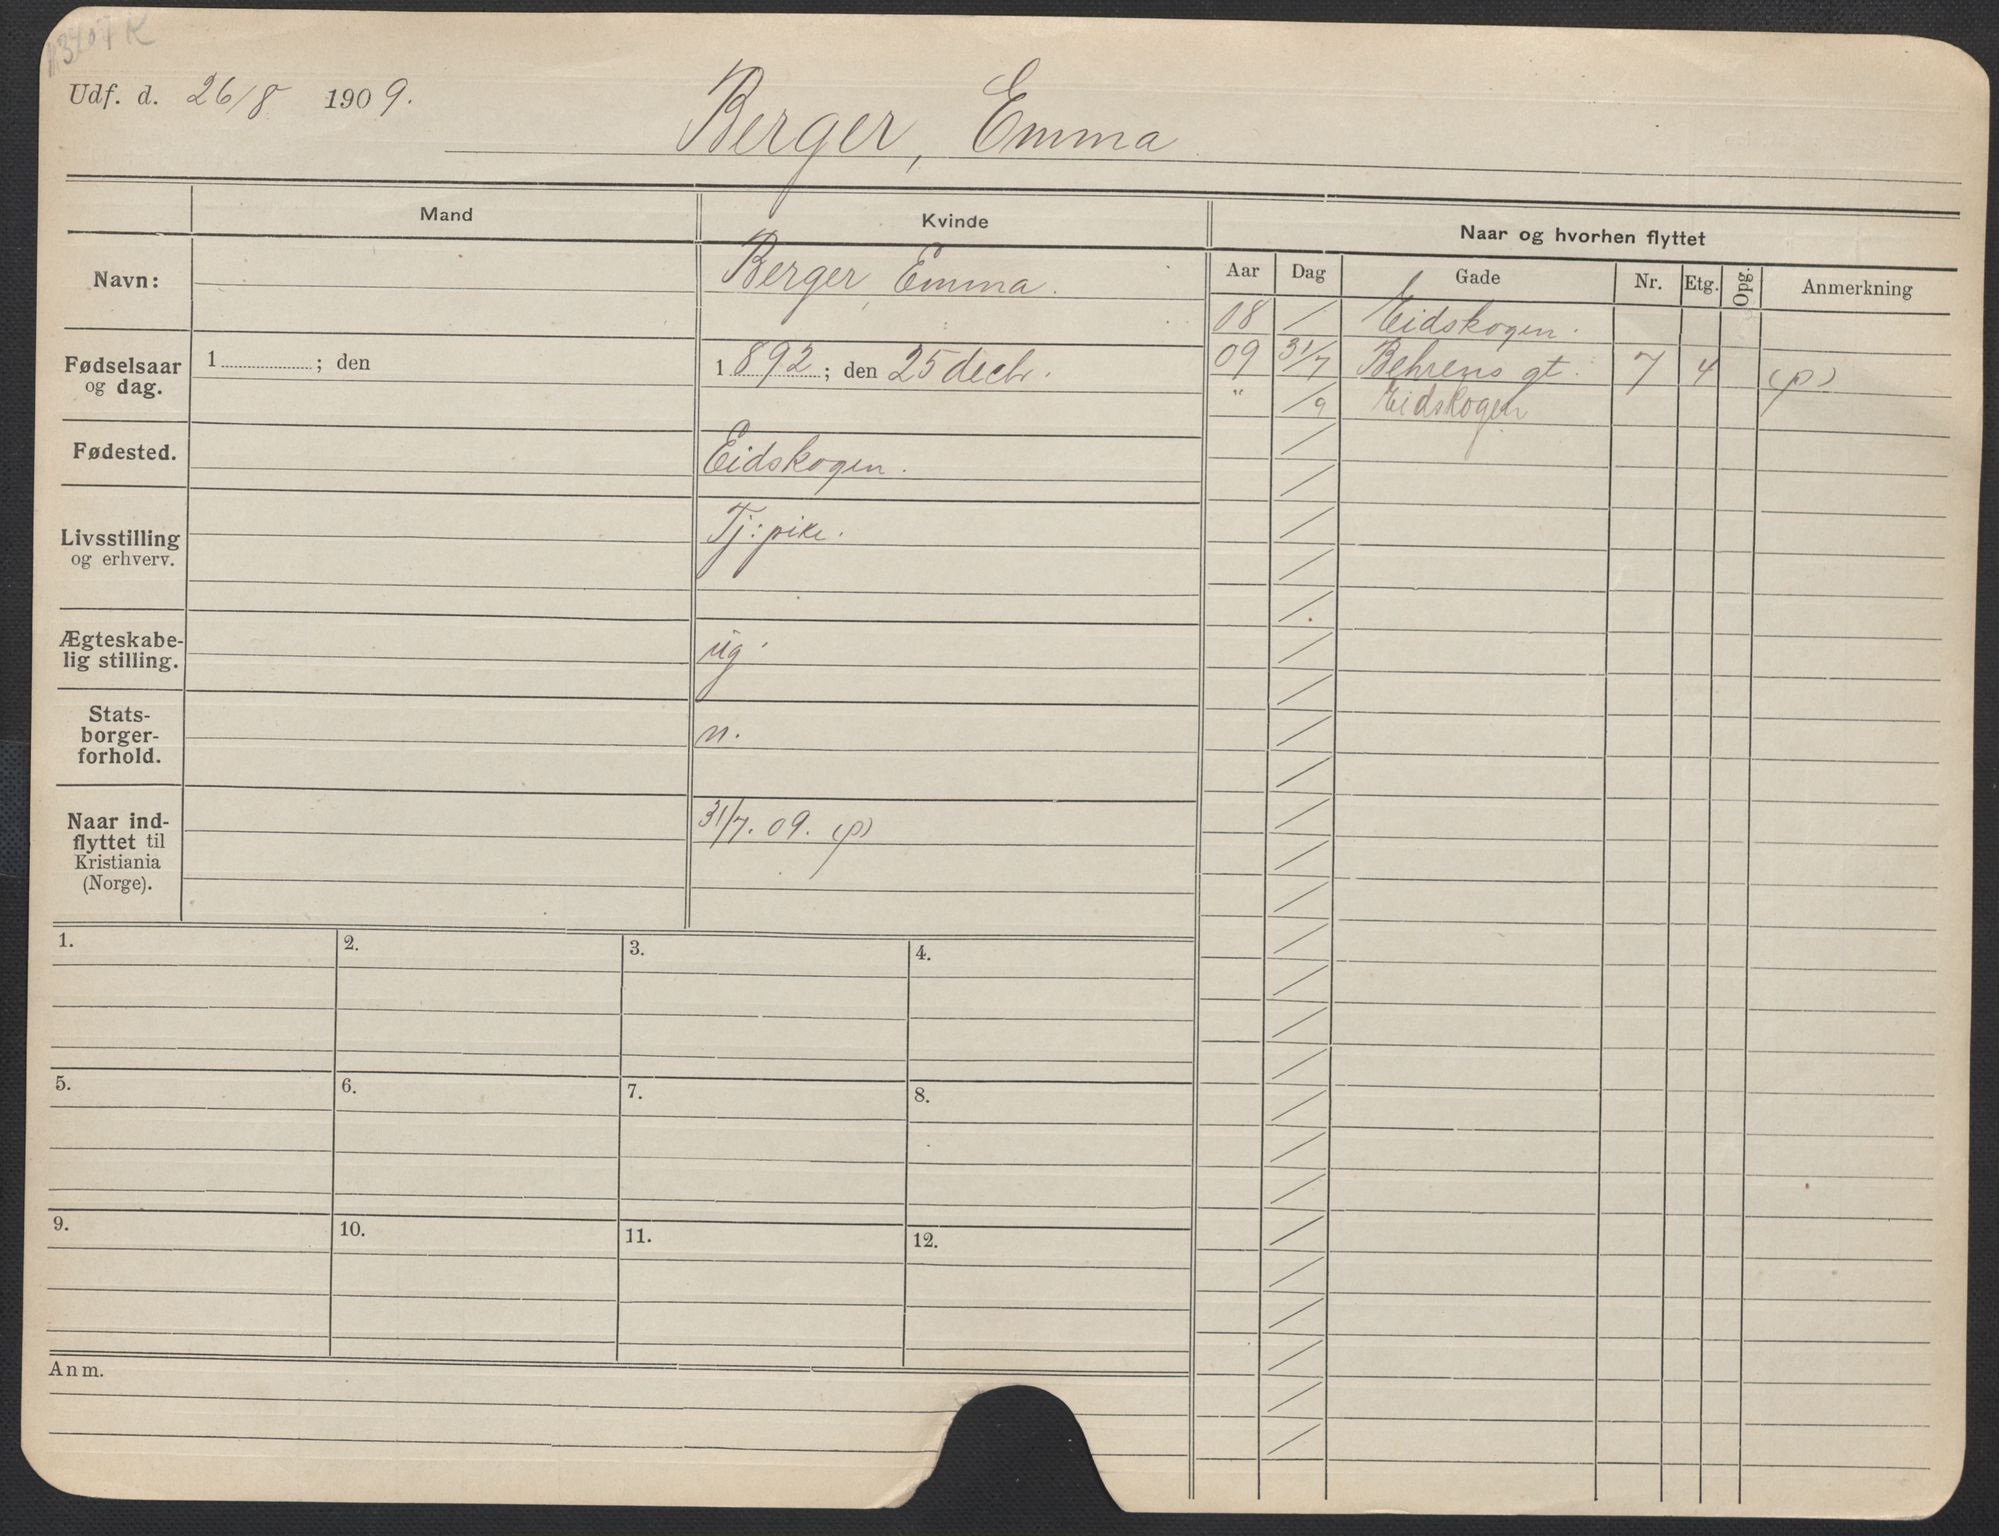 Udf. d. 26/8 1909.
Berger, Emma
Mand
Kvinde
Naar og hvorhen flyttet
Navn:
Berger, Emma.
Fødselsaar og dag.
1 ; den
1892; den 25 decbr.
Fødested.
Eidskogen.
Livsstilling og erhverv.
Tj: pike.
Ægteskabe-
lig stilling.
ug.
Stats-
borger-
forhold.
n.
Naar ind-
flyttet til
Kristiania
(Norge).
31/7. 09. (p)
Aar Dag Gade Nr. Etg. Opg. Anmerkning
08 / Eidskogen.
09 31/7 Behrens gt. 7 4 (p)
" /9 Eidskogen
1. 2. 3. 4.
5. 6. 7. 8.
9. 10. 11. 12.
Anm.